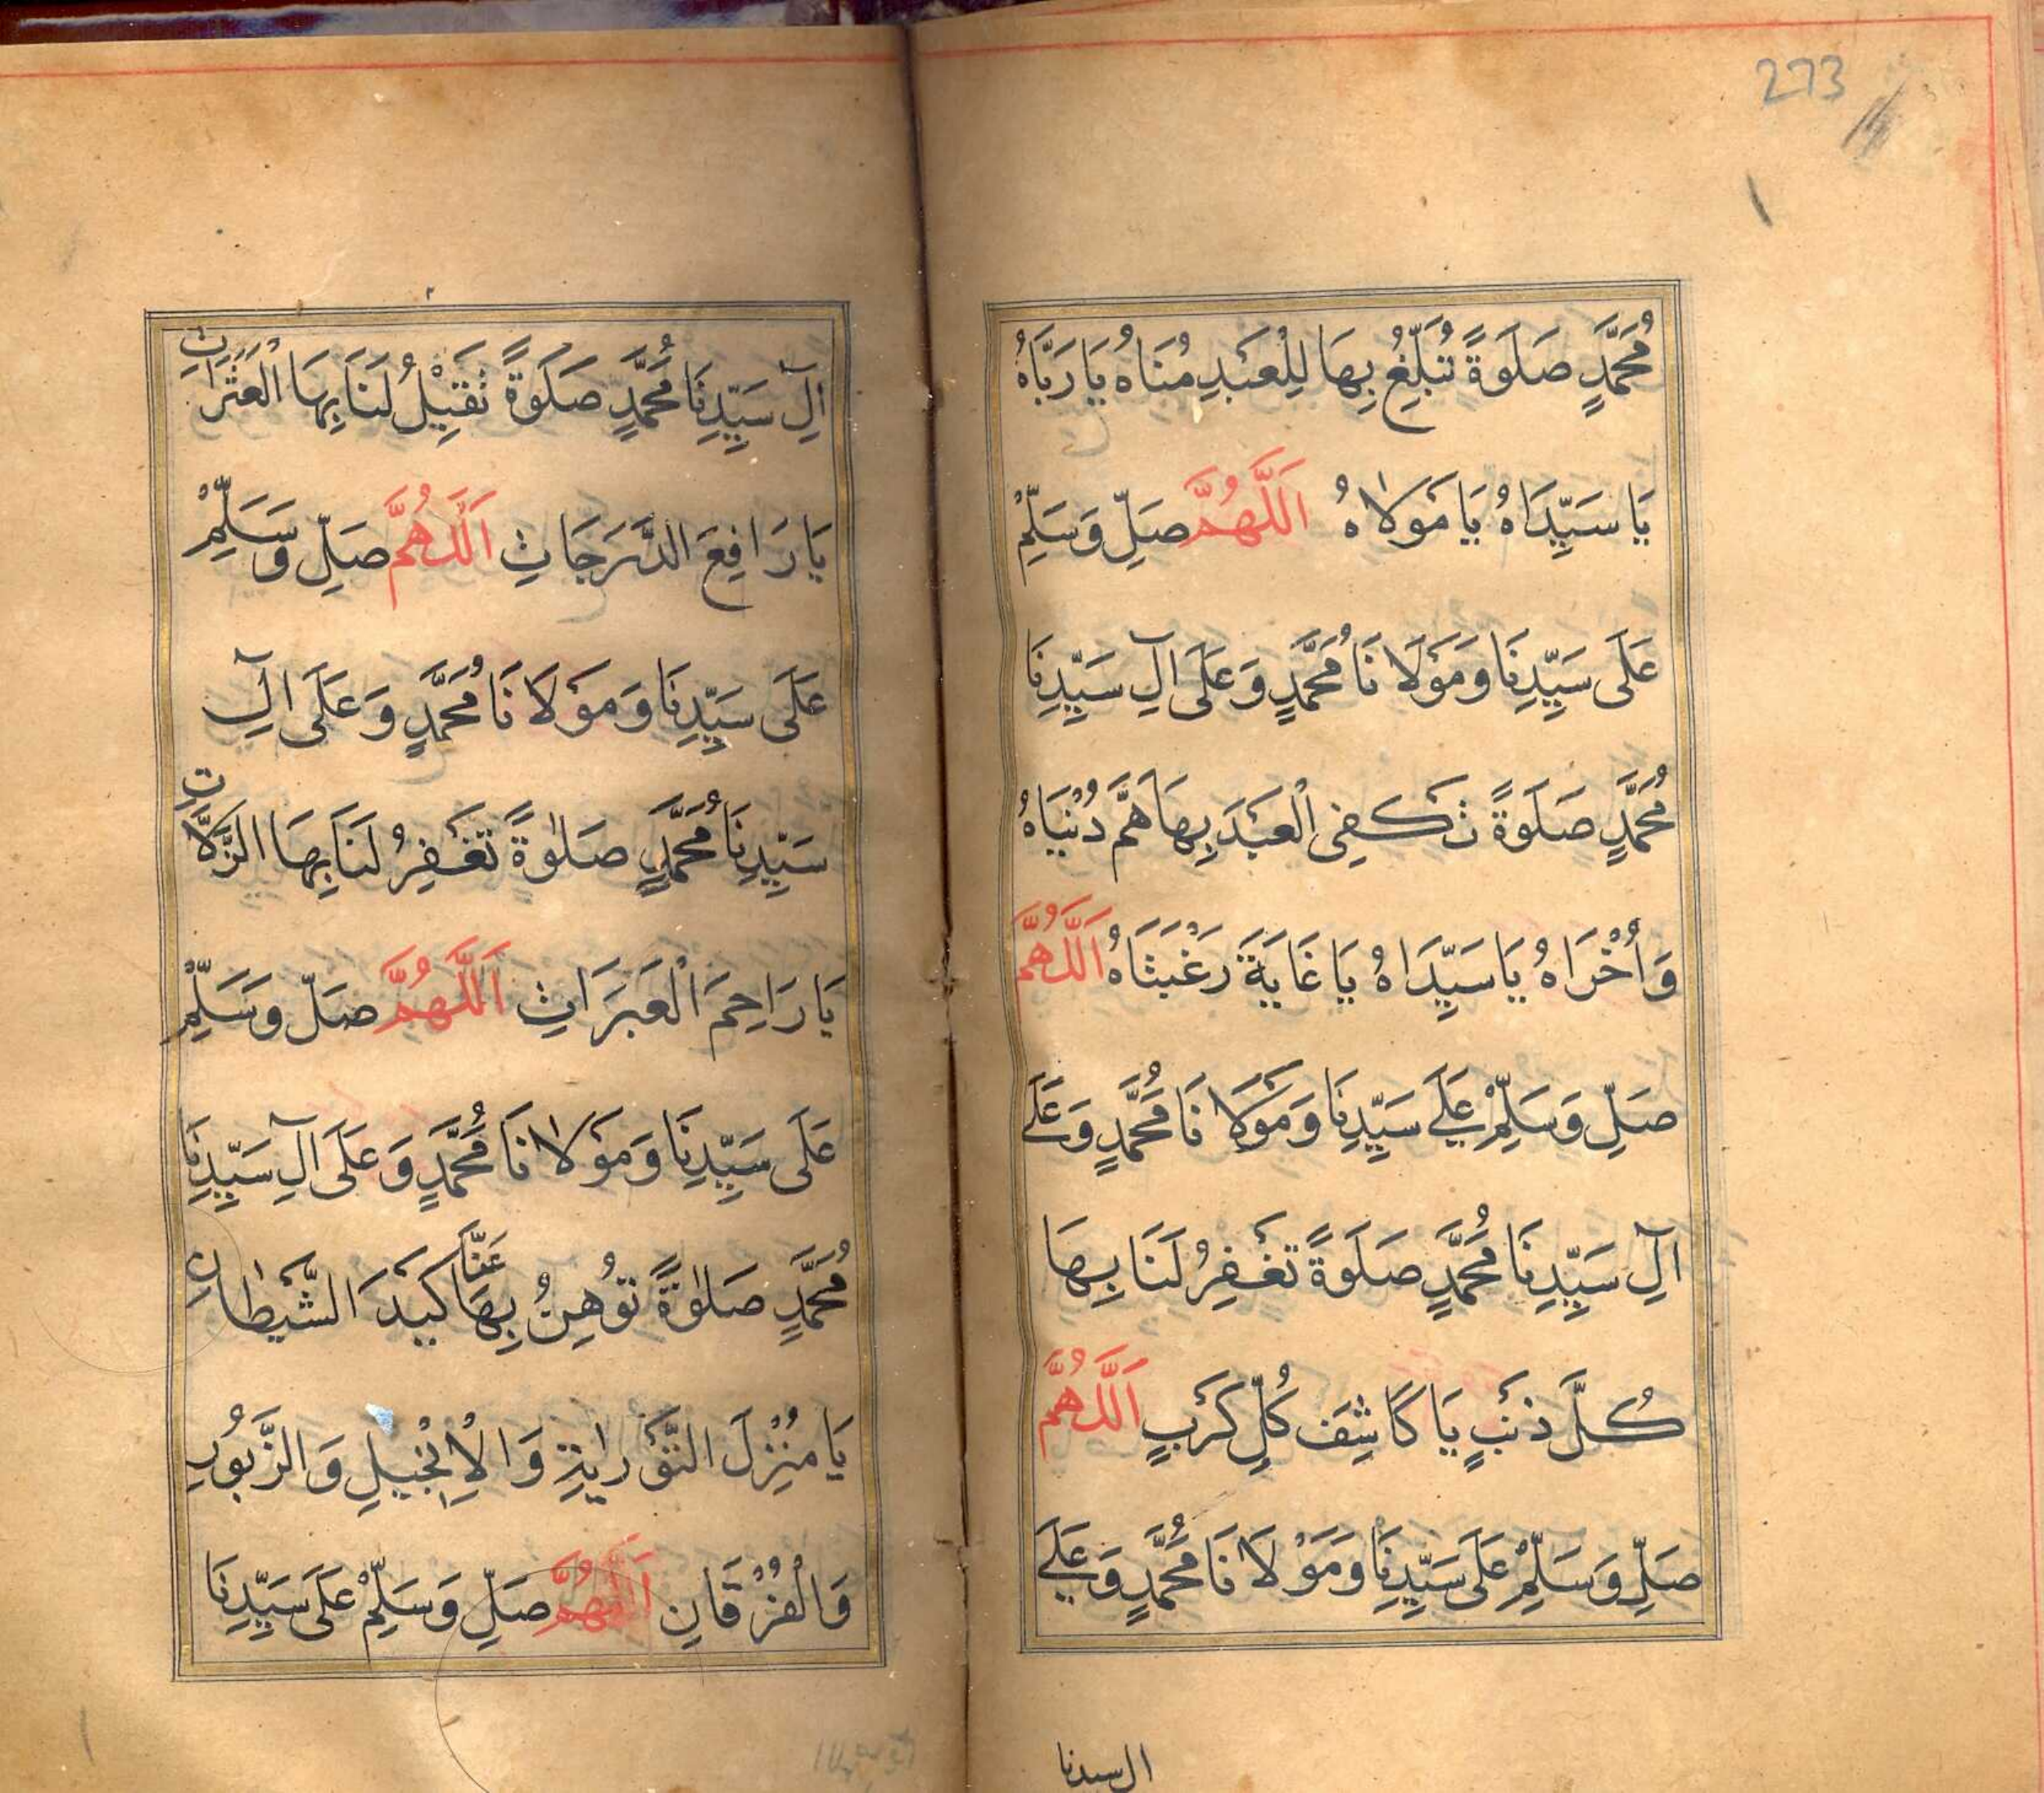 273
مُحَمَّدٍ صَلَوةً تُبَلِّغُ بِهَا لِلْعَبْدِ مُنَاهُ يَا رَبَّاهُ
يَا سَيِّدَاهُ يَا مَوْلَاهُ اَللّٰهُمَّ صَلِّ وَسَلِّمْ
عَلَى سَيِّدِنَا وَمَوْلَانَا مُحَمَّدٍ وَعَلَى آلِ سَيِّدِنَا
مُحَمَّدٍ صَلَوةً تَكْفِى الْعَبْدَ بِهَا هَمَّ دُنْيَاهُ
وَاُخْرَاهُ يَا سَيِّدَاهُ يَا غَايَةَ رَغْبَتَاهُ اَللّٰهُمَّ
صَلِّ وَسَلِّمْ عَلَے سَيِّدِنَا وَمَوْلَانَا مُحَمَّدٍ وَعَلَے
آلِ سَيِّدِنَا مُحَمَّدٍ صَلَوةً تَغْفِرُ لَنَا بِهَا
كُلَّ ذَنْبٍ يَا كَاشِفَ كُلِّ كَرْبٍ اَللّٰهُمَّ
صَلِّ وَسَلِّمْ عَلَى سَيِّدِنَا وَمَوْلَانَا مُحَمَّدٍ وَعَلَے
ال سيدنا
آلِ سَيِّدِنَا مُحَمَّدٍ صَلَوةً تُقِيْلُ لَنَا بِهَا الْعَثَرَاتِ
يَا رَافِعَ الدَّرَجَاتِ اَللّٰهُمَّ صَلِّ وَسَلِّمْ
عَلَى سَيِّدِنَا وَمَوْلَانَا مُحَمَّدٍ وَعَلَى آلِ
سَيِّدِنَا مُحَمَّدٍ صَلٰوةً تَغْفِرُ لَنَا بِهَا الزَّلَّاتِ
يَا رَاحِمَ الْعَبَرَاتِ اَللّٰهُمَّ صَلِّ وَسَلِّمْ
عَلَى سَيِّدِنَا وَمَوْلَانَا مُحَمَّدٍ وَعَلَى آلِ سَيِّدِنَا
مُحَمَّدٍ صَلٰوةً تُوْهِنُ بِهَا عَنَّا كَيْدَ الشَّيْطَانِ
يَا مُنْزِلَ التَّوْرٰيةِ وَالْاِنْجِيلِ وَالزَّبُوْرِ
وَالْفُرْقَانِ اَللّٰهُمَّ صَلِّ وَسَلِّمْ عَلَى سَيِّدِنَا